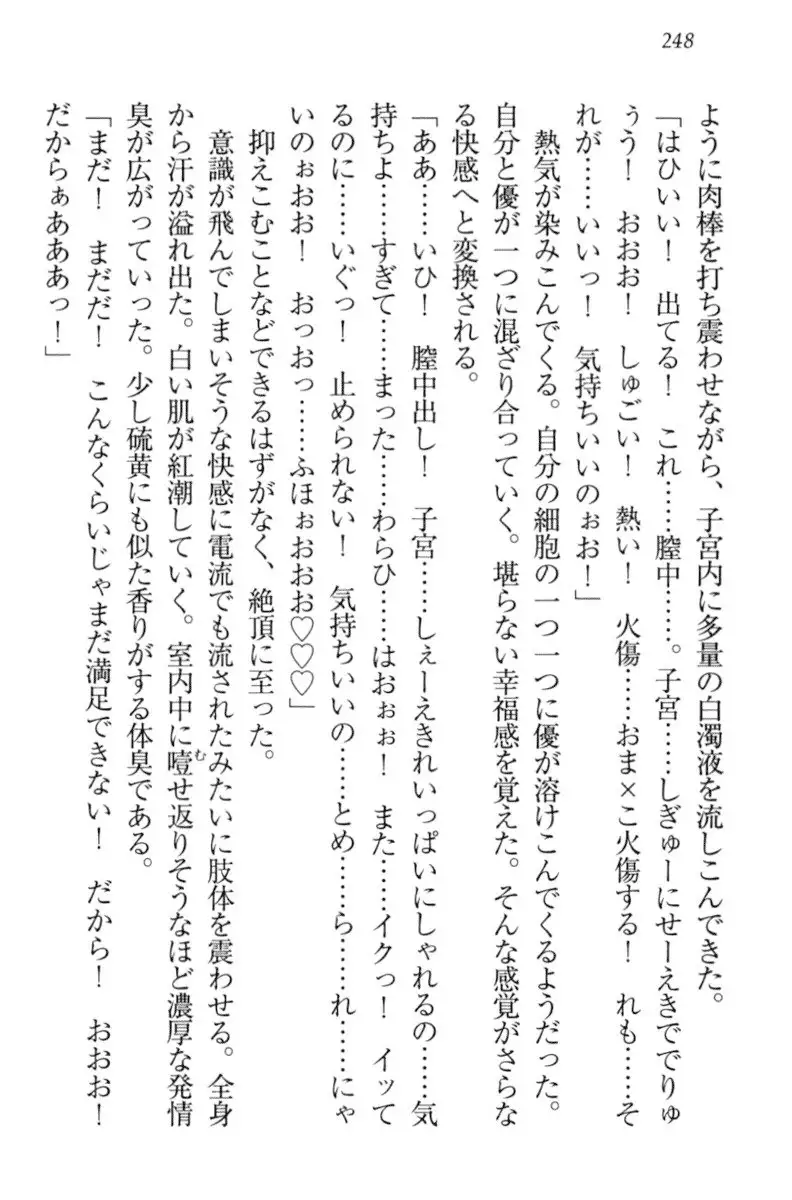 248
ように肉棒を打ち震わせながら、子宮内に多量の白濁液を流しこんできた。
「はひいい！　出てる！　これ……膣中……。子宮……しぎゅーにせーえきででりゅ
ぅう！　おおお！　しゅごい！　熱い！　火傷……おま×こ火傷する！　れも……そ
れが……いいっ！　気持ちいいのぉお！」
　熱気が染みこんでくる。自分の細胞の一つ一つに優が溶けこんでくるようだった。
自分と優が一つに混ざり合っていく。堪らない幸福感を覚えた。そんな感覚がさらな
る快感へと変換される。
「ああ……いひ！　膣中出し！　子宮……しぇーえきれいっぱいにしゃれるの……気
持ちよ……すぎて……まった……わらひ……はおぉぉ！　また……イクっ！　イッて
るのに……いぐっ！　止められない！　気持ちいいの……とめ……ら……れ……にゃ
いのぉおお！　おっおっ……ふほぉおおお♡♡♡」
　抑えこむことなどできるはずがなく、絶頂に至った。
　意識が飛んでしまいそうな快感に電流でも流されたみたいに肢体を震わせる。全身
から汗が溢れ出た。白い肌が紅潮していく。室内中に噎む せ返りそうなほど濃厚な発情
臭が広がっていった。少し硫黄にも似た香りがする体臭である。
「まだ！　まだだ！　こんなくらいじゃまだ満足できない！　だから！　おおお！
だからぁあああっ！」